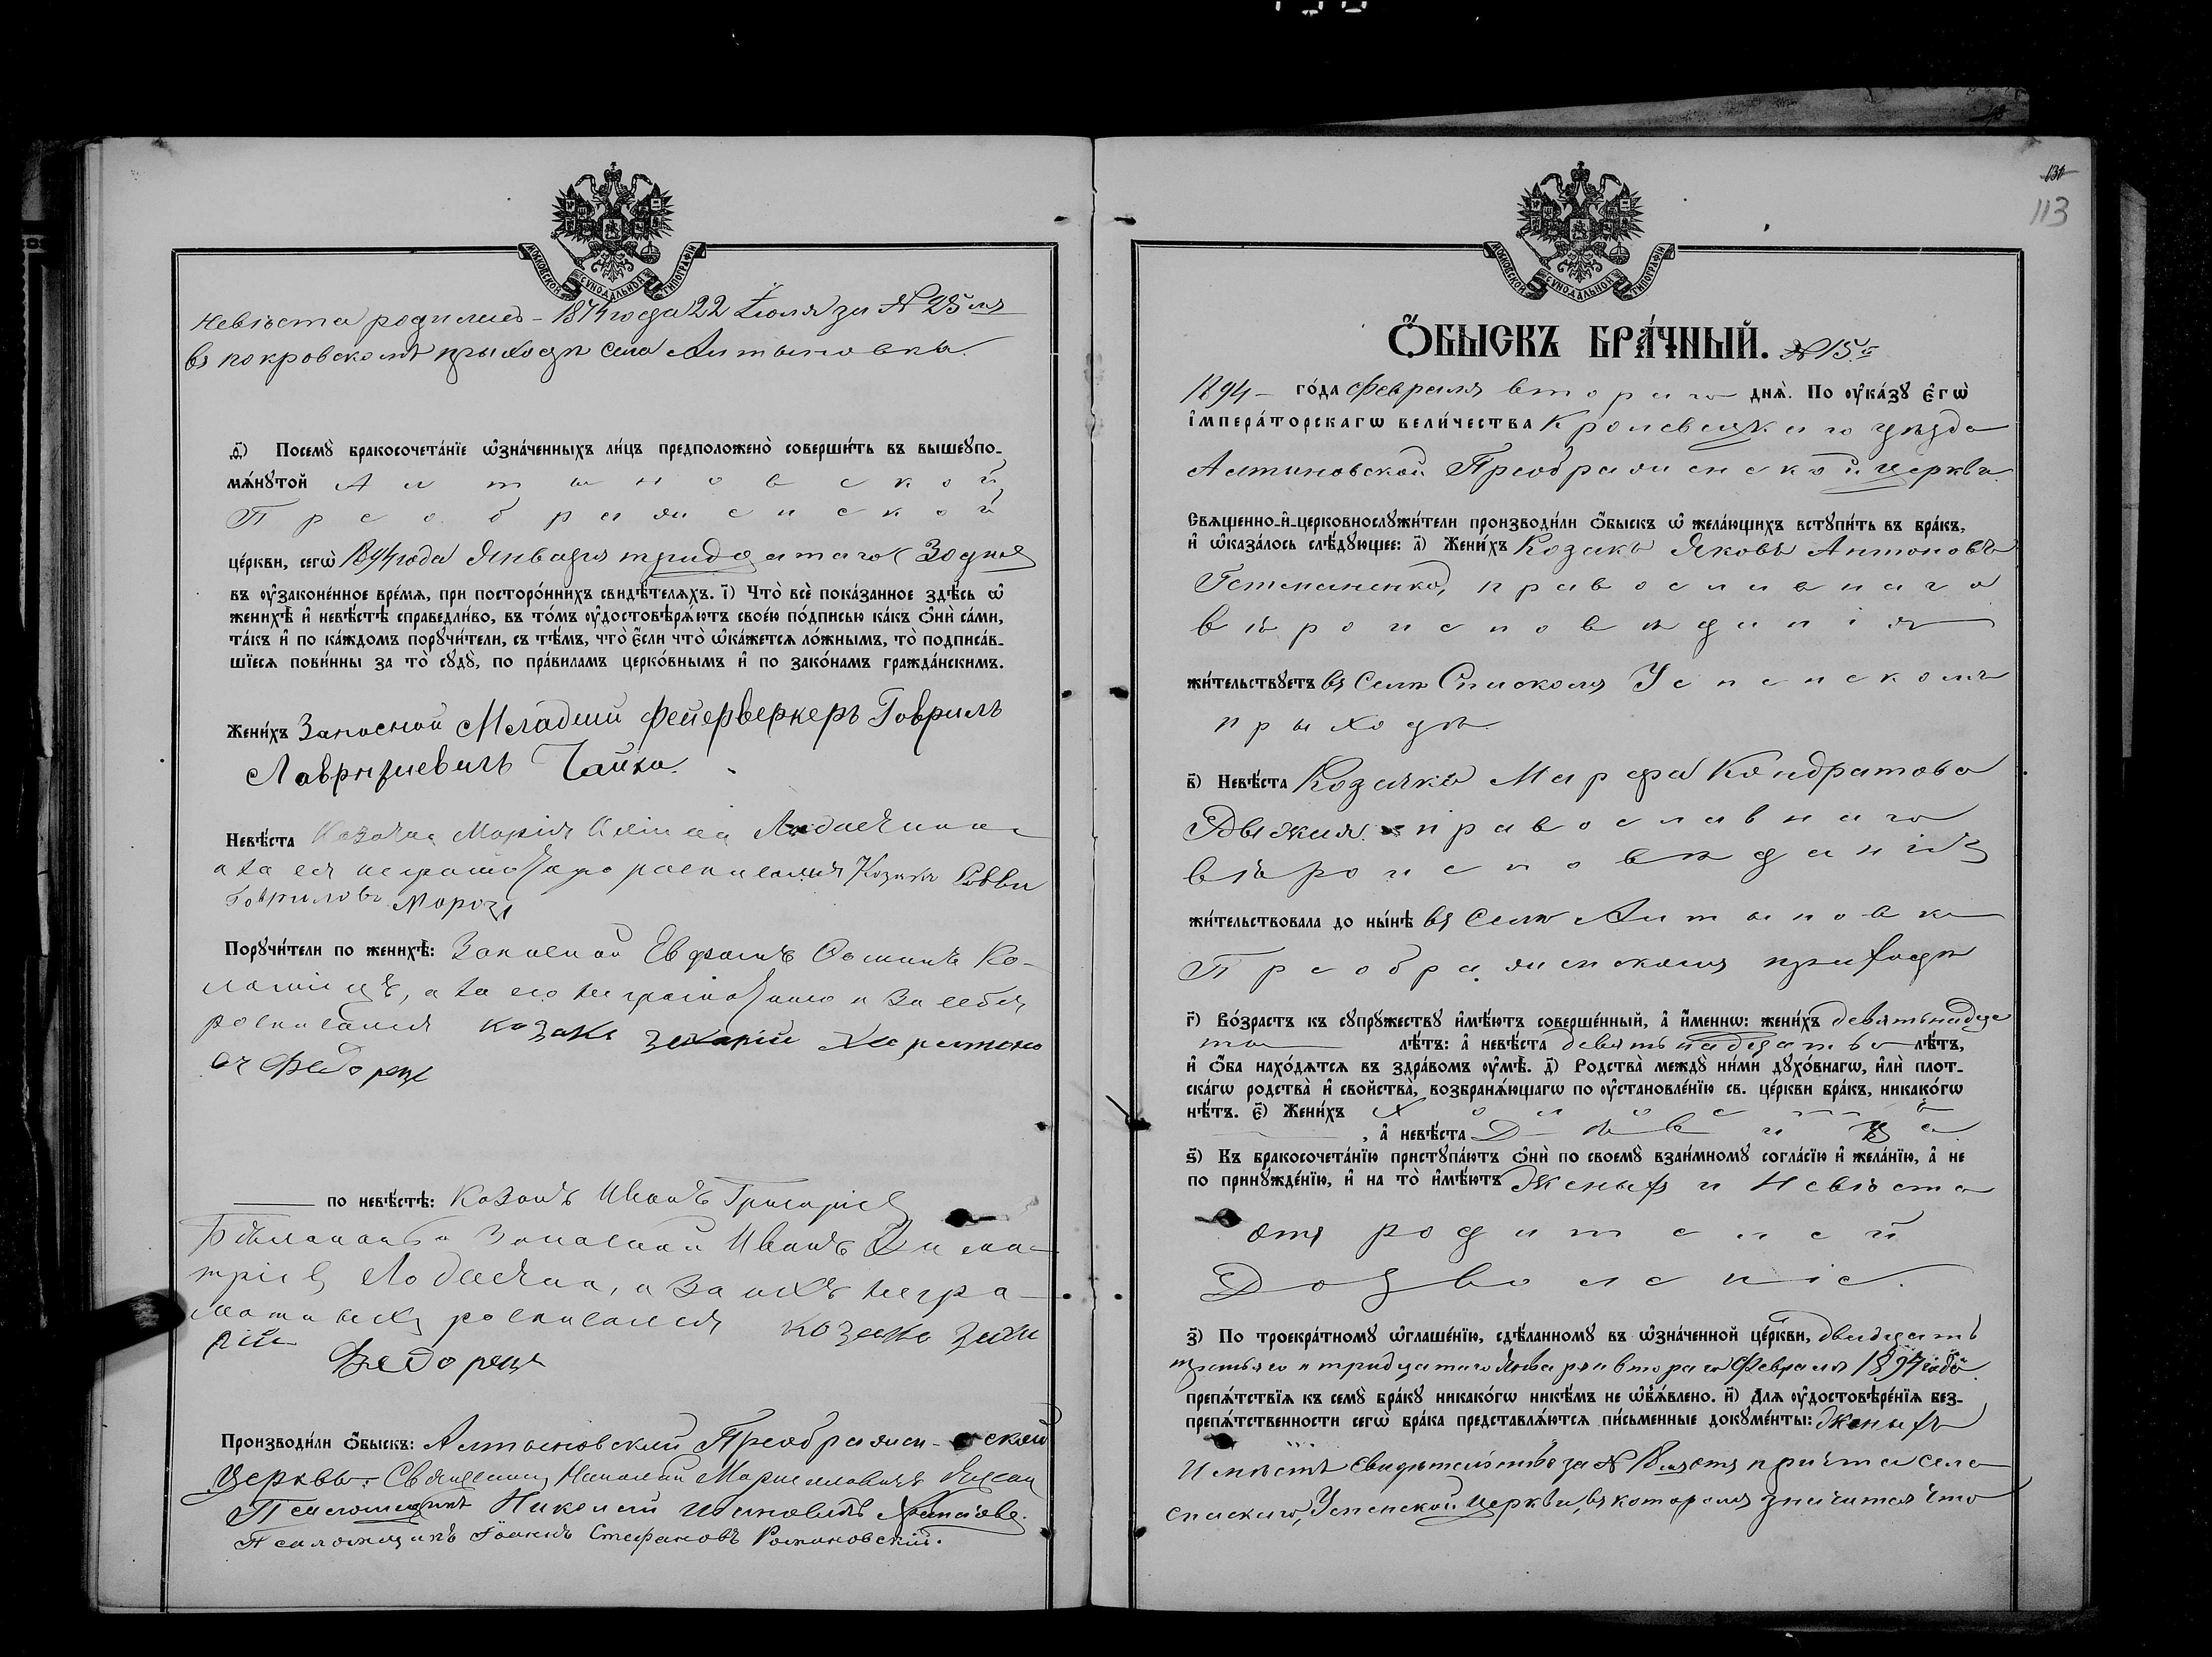 МОСКОВСКОЙ СѴНОДАЛЬНОЙ ТИПОГРАФІИ
Невѣста родилась - 1874 года 22 Іюля за № 25 мъ
въ покровскомъ приходѣ села Алтыновки.
ѳ҃) Посемꙋ̀ бракосочета́нїе ѡ҆зна́ченныхъ ли́цъ предположено̀ соверши́ть въ вышеꙋпо-
мѧ́нꙋтой Алтыновской
Преображенской
це́ркви, сегѡ̀ 1894 года Января тридцатаго (30 дня
въ ᲂу҆законе́нное вре́мѧ, при посторо́ннихъ свидѣ́телѧхъ. і҃) Что̀ всѐ пока́занное здѣ́сь ѡ҆
женихѣ̀ и҆ невѣ́стѣ справедли́во, въ то́мъ ᲂу҆достовѣрѧ́ютъ свое́ю по́дписью ка́къ ѻ҆нѝ са́ми,
та́къ и҆ по ка́ждомъ порꙋчи́тели, съ тѣ́мъ, что̀ є҆́сли что̀ ѡ҆ка́жетсѧ ло́жнымъ, то̀ подписа́в-
шїесѧ пови́нны за то̀ сꙋдꙋ̀, по пра́виламъ церко́внымъ и҆ по зако́намъ гражда́нскимъ.
Жени́хъ Запасной Младший Фейерверкеръ Гаврилъ
Чайка.
Невѣ́ста Казачка Марія
Козакъ Савва
Гавриловъ Морозъ
Порꙋчи́тели по женихѣ̀: Запасной
а за его неграмотнаго и за себя
росписался козакъ Захарій
Федорец
по невѣ́стѣ: Козакъ Иванъ Григоріев
Запасной Иванъ Дими-
тріев, а за ихъ негра-
мотныхъ росписался козакъ Заха
рій Федорец
Производи́ли ѻ҆́быскъ: Алтыновской Преображен-ской
Церквы: Священник
Псаломщикъ Николай
Псаломщикъ Іоаннъ Стефановъ Романовскій.
131
113
МОСКОВСКОЙ СѴНОДАЛЬНОЙ ТИПОГРАФІИ
Ѻ҆́БЫСКЪ БРА́ЧНЫЙ. № 15й
1894 - го́да Февраля втораго днѧ̀. По ᲂу҆ка́зꙋ є҆гѡ̀
і҆мпера́торскагѡ вели́чества Кролевецкаго уѣзда
Алтиновской Преображенской церкви.
Свѧщенно-и҆-церковнослꙋжи́тели производи́ли ѻ҆́быскъ ѡ҆ жела́ющихъ встꙋпи́ть въ бра́къ,
и҆ ѡ҆каза́лось слѣ́дꙋющее: а҃) Жени́хъ Козакъ Яковъ Антоновъ
православнаго
вѣроисповѣданія
жи́тельствꙋетъ въ Селѣ Спаскомъ Успенскомъ
прыходѣ.
в҃) Невѣ́ста Козачка Марфа Кондратова
православнаго
вѣроисповѣданія
жи́тельствовала до ны́нѣ въ Селѣ Алтыновки
Преображенскомъ приходѣ
г҃) Во́зрастъ къ сꙋпрꙋжествꙋ и҆мѣ́ютъ соверше́нный, а҆ и҆́меннѡ: жени́хъ девятьнадца
ть лѣ́тъ: а҆ невѣ́ста девятьнадцать лѣ́тъ,
и҆ ѻ҆́ба нахо́дѧтсѧ въ здра́вомъ ᲂу҆мѣ̀. д҃) Родства̀ междꙋ̀ ни́ми дꙋхо́внагѡ, и҆лѝ плот-
ска́гѡ родства̀ и҆ сво́йства̀, возбранѧ́ющагѡ по ᲂу҆становле́нїю св. це́ркви бра́къ, никако́гѡ
нѣ́тъ. є҃) Жени́хъ Холостъ
, а҆ невѣ́ста Дѣвица
ѕ҃) Къ бракосочета́нїю пристꙋпа́ютъ ѻ҆нѝ по своемꙋ̀ взаи́мномꙋ согла́сїю и҆ жела́нїю, а҆ не
по принꙋжде́нїю, и҆ на то̀ и҆мѣ́ютъ Женыхъ и Невѣста
отъ родителей
Дозволеніе.
з҃) По троекра́тномꙋ ѡ҆глаше́нїю, сдѣ́ланномꙋ въ ѡ҆зна́ченной це́ркви, двадцать
третьяго и тридцатаго Января и втораго Февраля 1894 года
препѧ́тствїѧ къ семꙋ̀ бра́кꙋ никако́гѡ никѣ́мъ не ѡ҆б̾ѧ́влено. и҃) Для ᲂу҆достовѣре́нїѧ без-
препѧ́тственности сегѡ̀ бра́ка представлѧ́ютсѧ пи́сьменные докꙋме́нты: Женыхъ
свидѣтельство за № отъ причта села
Спаскаго, Успенской Церкви, въ которомъ значится что